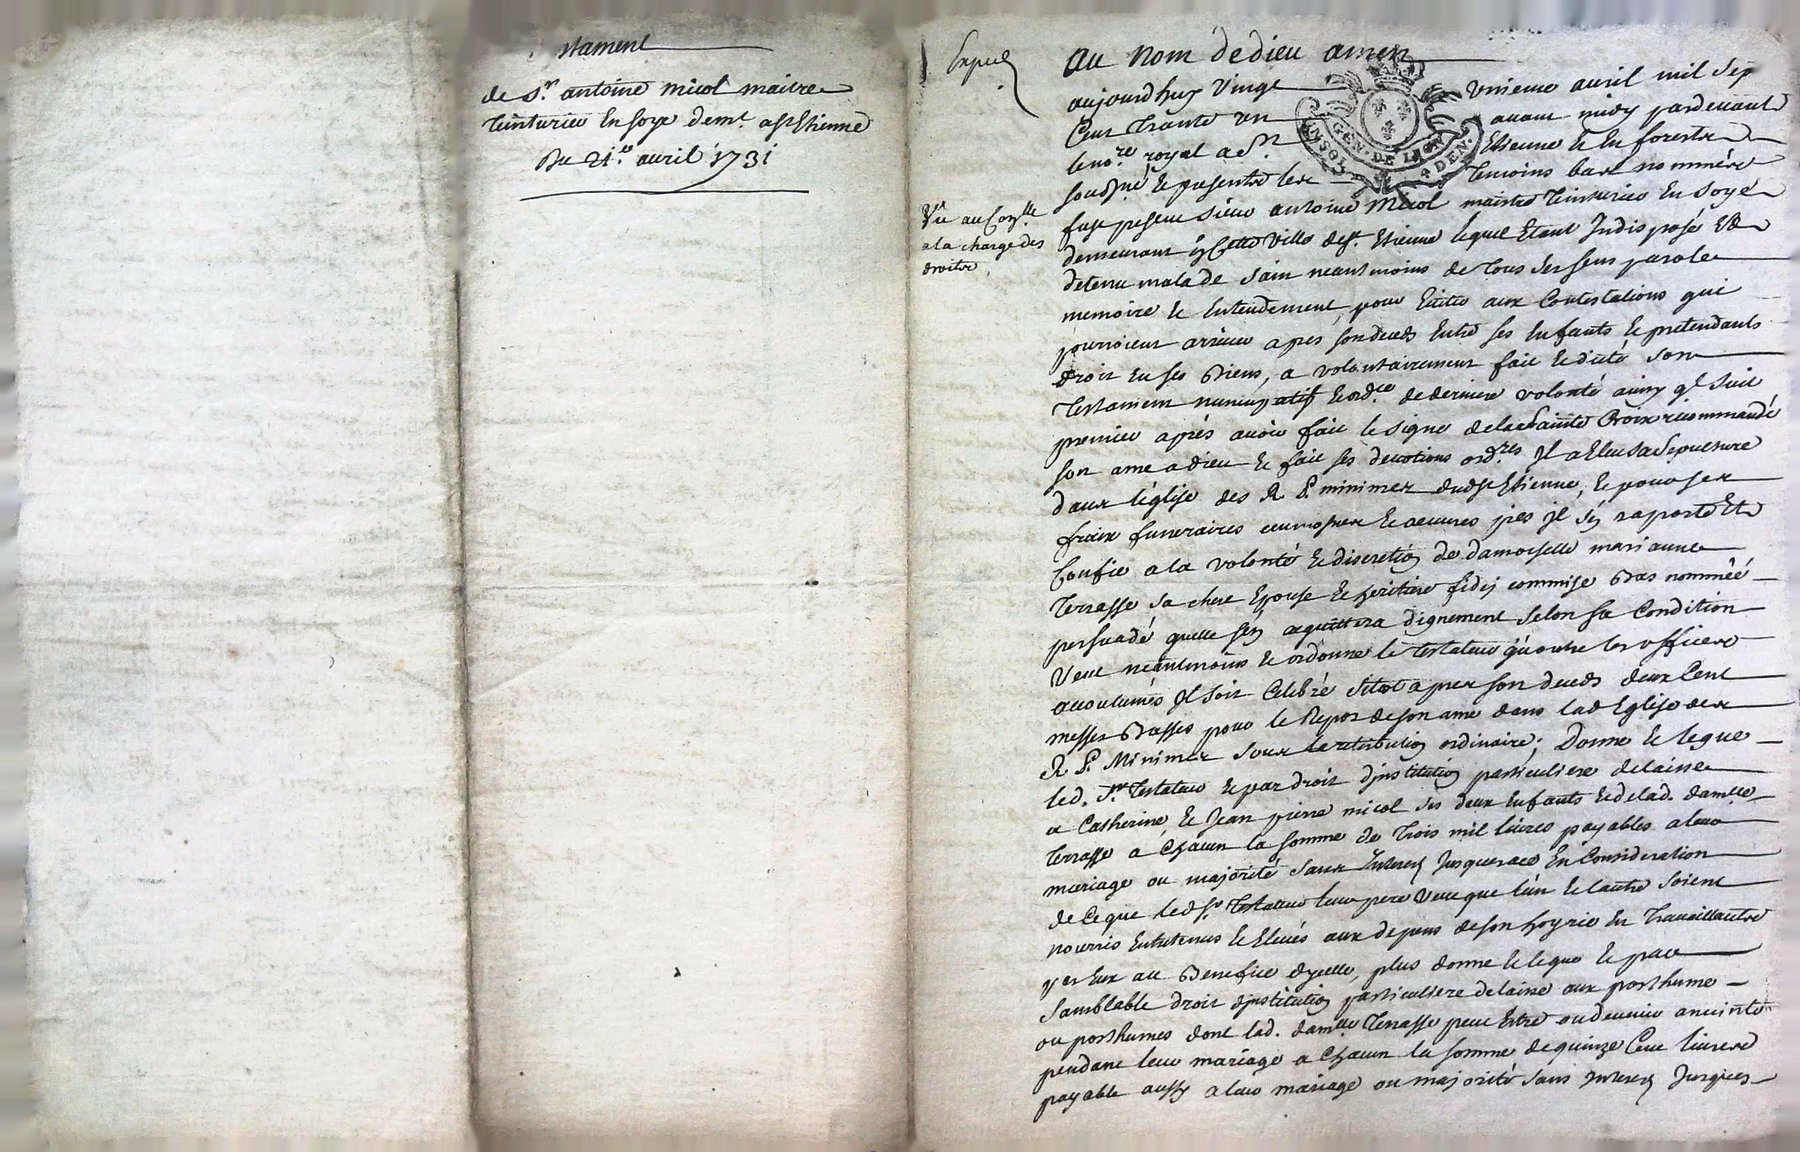 stament
de Sr. antoine micol maitre
Teinturier En soye demt. a St Etienne
Du 21.e avril 1731
Expié
Vu au Con.lle
a la charge des
droits
au Nom de dieu amen
aujourdhuy vingt unieme avril mil sep
Cent trante un avant midy pardevant
le no.re royal a St. Etienne Et En forestz
sousné Et presentz les Temoins bas nommés
fust present sieur antoine Micol maitre Teinturier En soye
demeurant En Cette ville de St. Etienne lequel Etant Indisposé Et
detenu malade sain neantmoins de tous ses sens parole
memoire Et Entendement, pour Eviter aux Contestations qui
pourroient arriver apres son deceds Entre ses Enfants Et pretendants
droit En ses Biens, a volontairement fait Et dicté son
Testament nuncupatif Et ord.ce de derniere volonté ainsy q.l suit
premier après avoir fait le signe de la Sainte Croix recommandé
son ame a dieu Et fait ses devotions ord.res Il a Eleu sa sepulture
dans l'église des R. P. minimes dud St Etienne, Et pour ses
fraix funeraires aumosnes Et oeuvres pies Il s'En raporte Et
Confie a la volonté Et discretion de damoiselle marianne
Terrasse sa chere Epouse Et heritiere fidei commise Bas nommée
persuadé quelle s'En aquittera dignement selon sa Condition
Veut neantmoins Et ordonne le testateur qu'outre les offices
accoutumés Il soit Celebré sitot apres son deceds deux Cent
messes Basses pour le Repos de son ame dans lad Eglise des
R. P. Minimes sous la retribution ordinaire; Donne Et legue
led. Sr. Testateur Et par droit d'institution particuliere delaisse
a Catherine Et Jean pierre micol ses deux Enfants Et de lad. dam.lle
Terrasse a Chacun la somme de Trois mil livres payables a leur
mariage ou majorité sans Interest Jusques ace En Consideration
de Ce que led Sr Testateur leur pere veut que l'un Et l'autre soient
nourris Entretenus Et Elevés aux depens de son hoyrie En Travaillant
par Eux au Benefice d'ycelle, plus donne Et legue Et par
samblable droit d'institution particuliere delaisse aux posthume
ou posthumes dont lad. dam.lle Terrasse peut Estre ou devenir anceinte
pendant leur mariage a Chacun la somme de quinze Cent livres
payable aussy a leur mariage ou majorité sans Interest Jusques
GEN. DE LION
4 DEN.